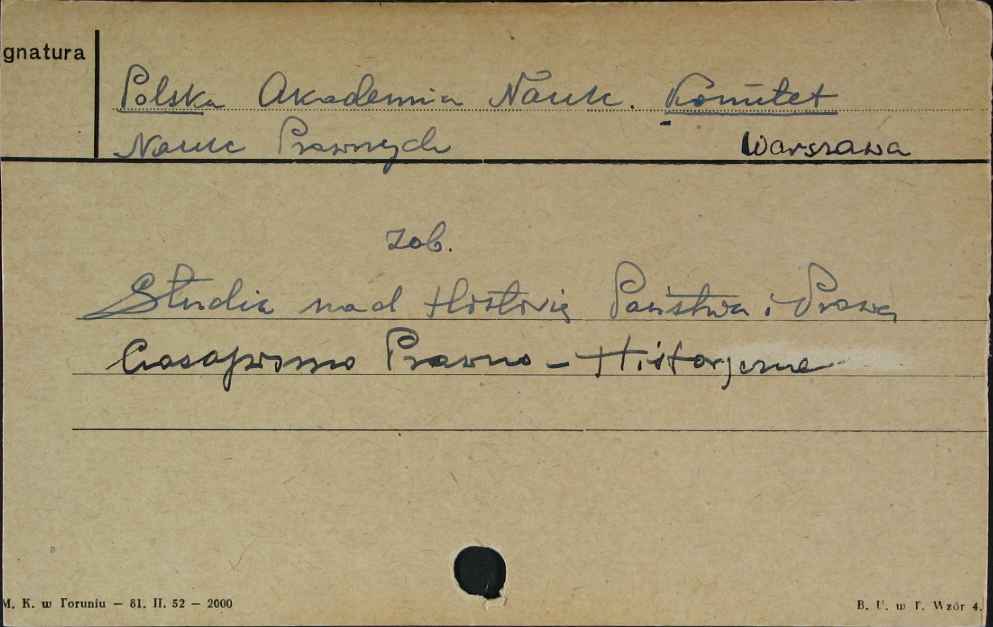 gnatura
Polska Akademia Nauk. Komitet
Nauk Prawnych Warszawa
zob.
Studia nad Historią Państwa i Prawa
Czasopismo Prawno-Historyczne
M. K. w Toruniu — 81. II. 52 — 2000
B. U. w T. Wzór 4.